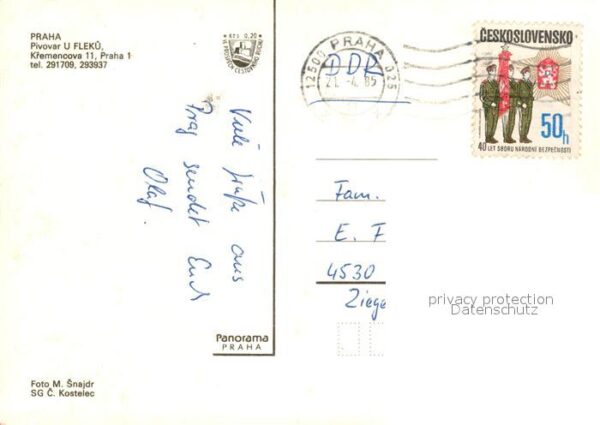 PRAHA
Pivovar U FLEKŮ,
Křemencova 11, Praha 1
tel. 291709, 293937
Kčs 0,20
12500 PRAHA 025
21. -4. 85
ČESKOSLOVENSKO
50h
40 LET SBORU NÁRODNÍ BEZPEČNOSTI
DDR
Viele Grüße aus
Prag sendet Euch
Olaf.
Fam.
E. F
4530
Ziege
privacy protection
Datenschutz
Panorama
PRAHA
Foto M. Šnajdr
SG Č. Kostelec